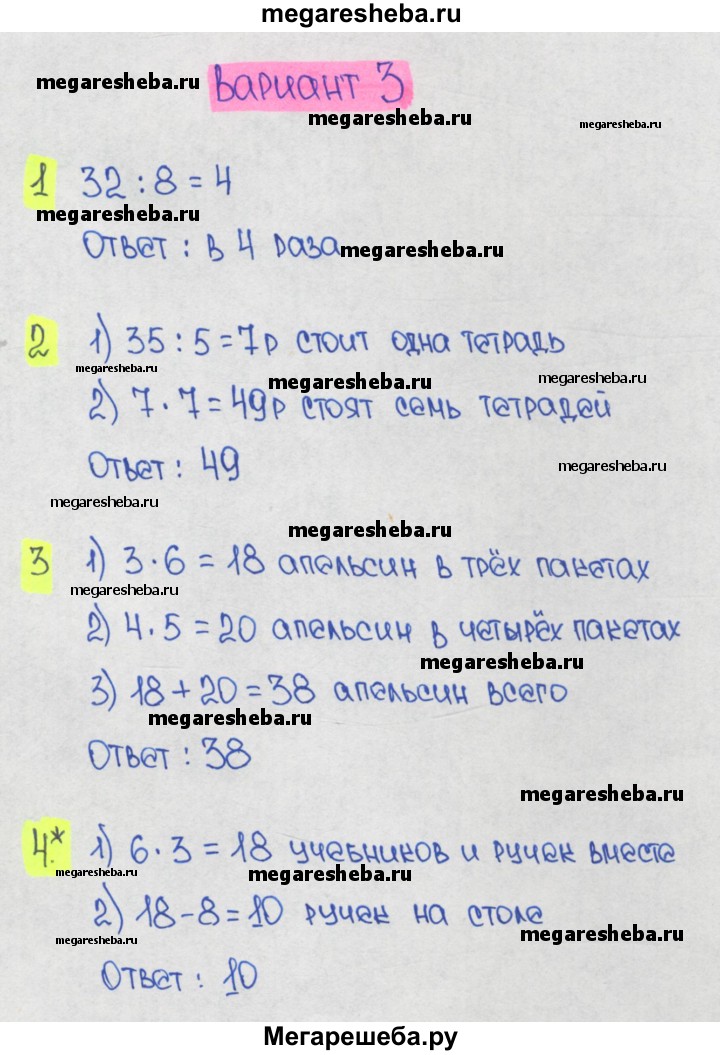 megaresheba.ru
megaresheba.ru вариант 3
megaresheba.ru megaresheba.ru
1 32 : 8 = 4
megaresheba.ru
Ответ : в 4 раза megaresheba.ru
2 1) 35 : 5 = 7р стоит одна тетрадь
megaresheba.ru megaresheba.ru megaresheba.ru
2) 7 · 7 = 49р стоят семь тетрадей
Ответ : 49 megaresheba.ru
megaresheba.ru
megaresheba.ru
3 1) 3 · 6 = 18 апельсин в трёх пакетах
megaresheba.ru
2) 4 . 5 = 20 апельсин в четырёх пакетах
megaresheba.ru
3) 18 + 20 = 38 апельсин всего
megaresheba.ru
Ответ : 38
megaresheba.ru
4.* 1) 6 · 3 = 18 учебников и ручек вместе
megaresheba.ru megaresheba.ru
2) 18 - 8 = 10 ручек на столе
megaresheba.ru megaresheba.ru
Ответ : 10
Мегарешеба.ру